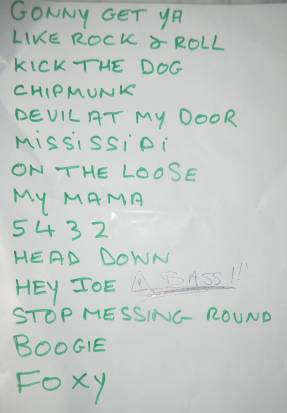 GONNY GET YA
LIKE ROCK & ROLL
KICK THE DOG
CHIPMUNK
DEVIL AT MY DOOR
MISSISSIPI
ON THE LOOSE
MY MAMA
5 4 3 2
HEAD DOWN
HEY JOE A BASS!!
STOP MESSING ROUND
BOOGIE
FOXY